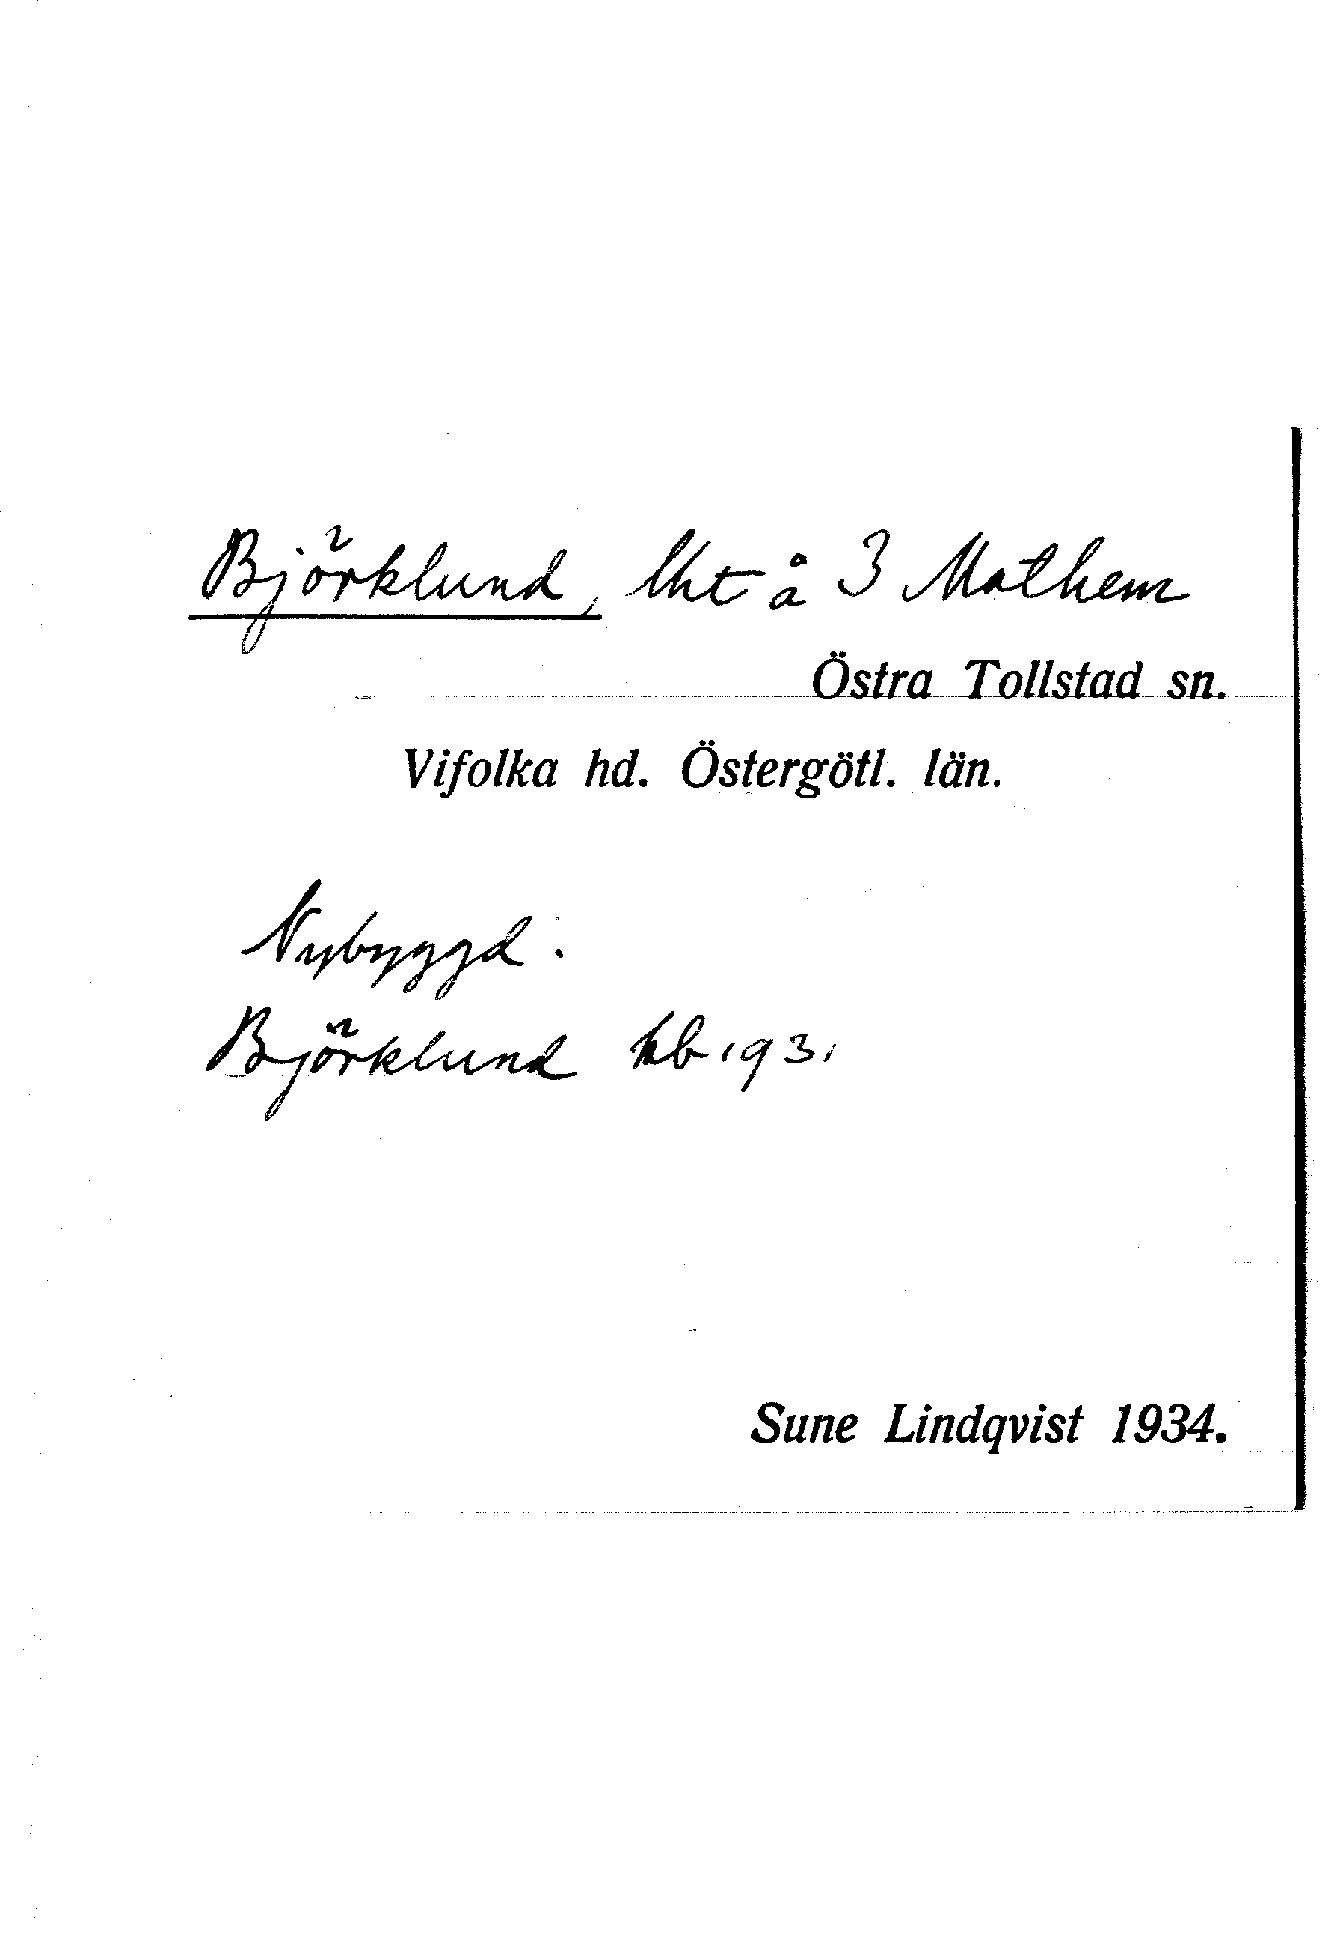 Björklund, lht å 3 Mathem
Östra Tollstad sn.
Vifolka hd. Östergötl. län.
Nybyggd.
Björklund kb 1931
Sune Lindqvist 1934.